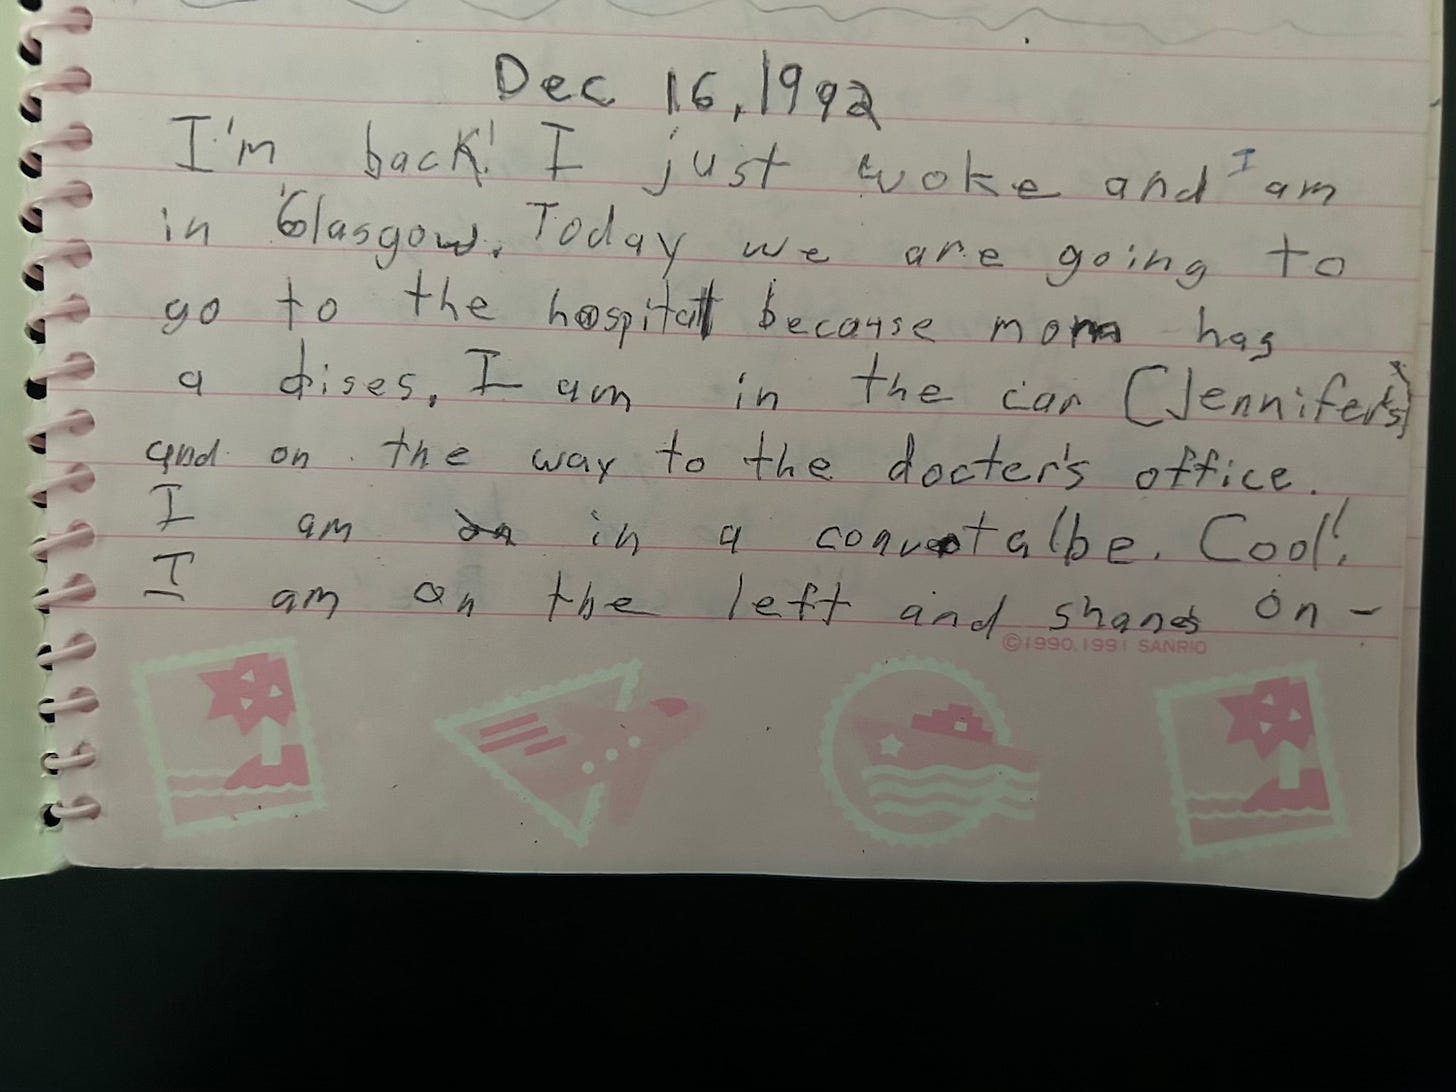 Dec 16, 1992
I'm back! I just woke and I am
in Glasgow. Today we are going to
go to the hospital because mom has
a dises. I am in the car (Jennifer's)
and on the way to the docter's office.
I am in a convetalbe. Cool!
I am on the left and shanes on-
©1990, 1991 SANRIO